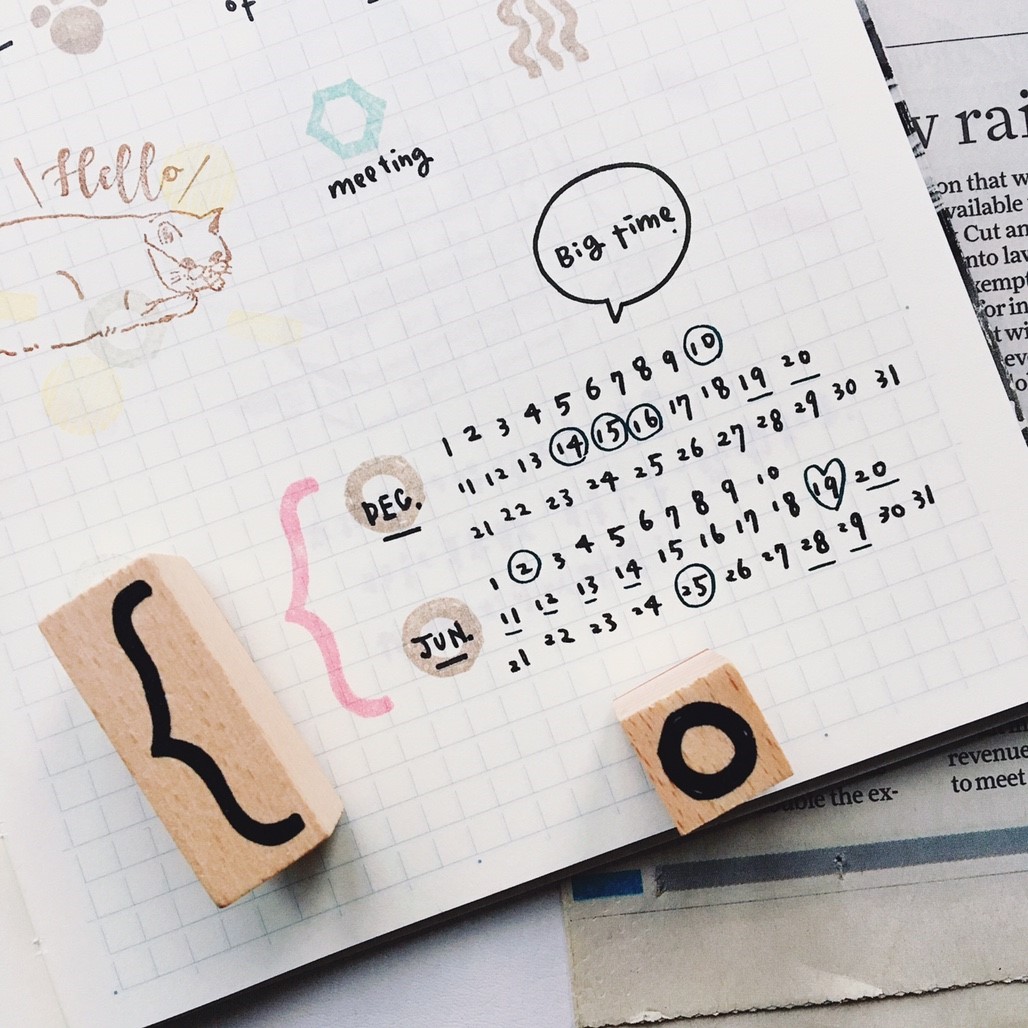 of
Hello
meeting
Big time
DEC.
1 2 3 4 5 6 7 8 9 10
11 12 13 14 15 16 17 18 19 20
21 22 23 24 25 26 27 28 29 30 31
JUN.
1 2 3 4 5 6 7 8 9 10
11 12 13 14 15 16 17 18 19 20
21 22 23 24 25 26 27 28 29 30 31
rai
on that w
vailable
Cut an
nto law
exempt
for in
t wi
revenue
to meet
able the ex-